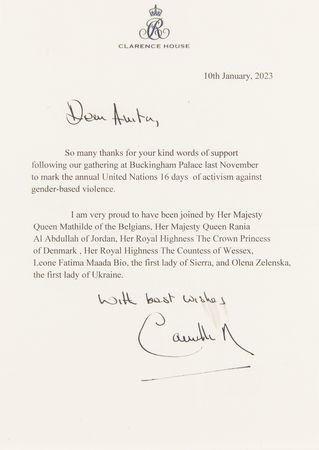 CLARENCE HOUSE
10th January, 2023
Dear Anita,
So many thanks for your kind words of support
following our gathering at Buckingham Palace last November
to mark the annual United Nations 16 days of activism against
gender-based violence.
I am very proud to have been joined by Her Majesty
Queen Mathilde of the Belgians, Her Majesty Queen Rania
Al Abdullah of Jordan, Her Royal Highness The Crown Princess
of Denmark , Her Royal Highness The Countess of Wessex,
Leone Fatima Maada Bio, the first lady of Sierra, and Olena Zelenska,
the first lady of Ukraine.
With best wishes
Camilla R